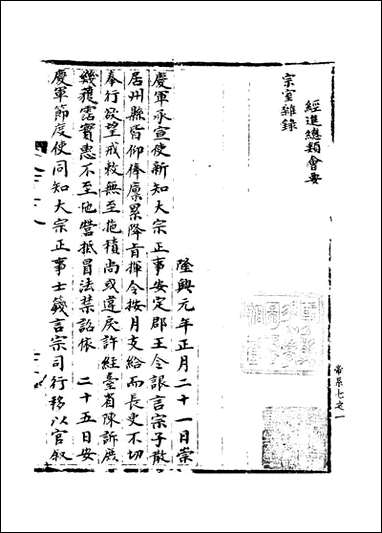 經進總類會要
宗室雜錄
隆興元年正月二十一日崇
慶軍承宣使新知大宗正事安定郡王令詪言宗子散
居州縣皆仰俸廩累降旨揮令按月支給而長吏不切
奉行欲望戒敕無至拖積尚或違戾許經臺省陳訴庶
幾霑實惠不至他營抵冒法禁詔依 二十五日安
慶軍節度使同知大宗正事士籛言宗司行移以官叙
帝系七之一